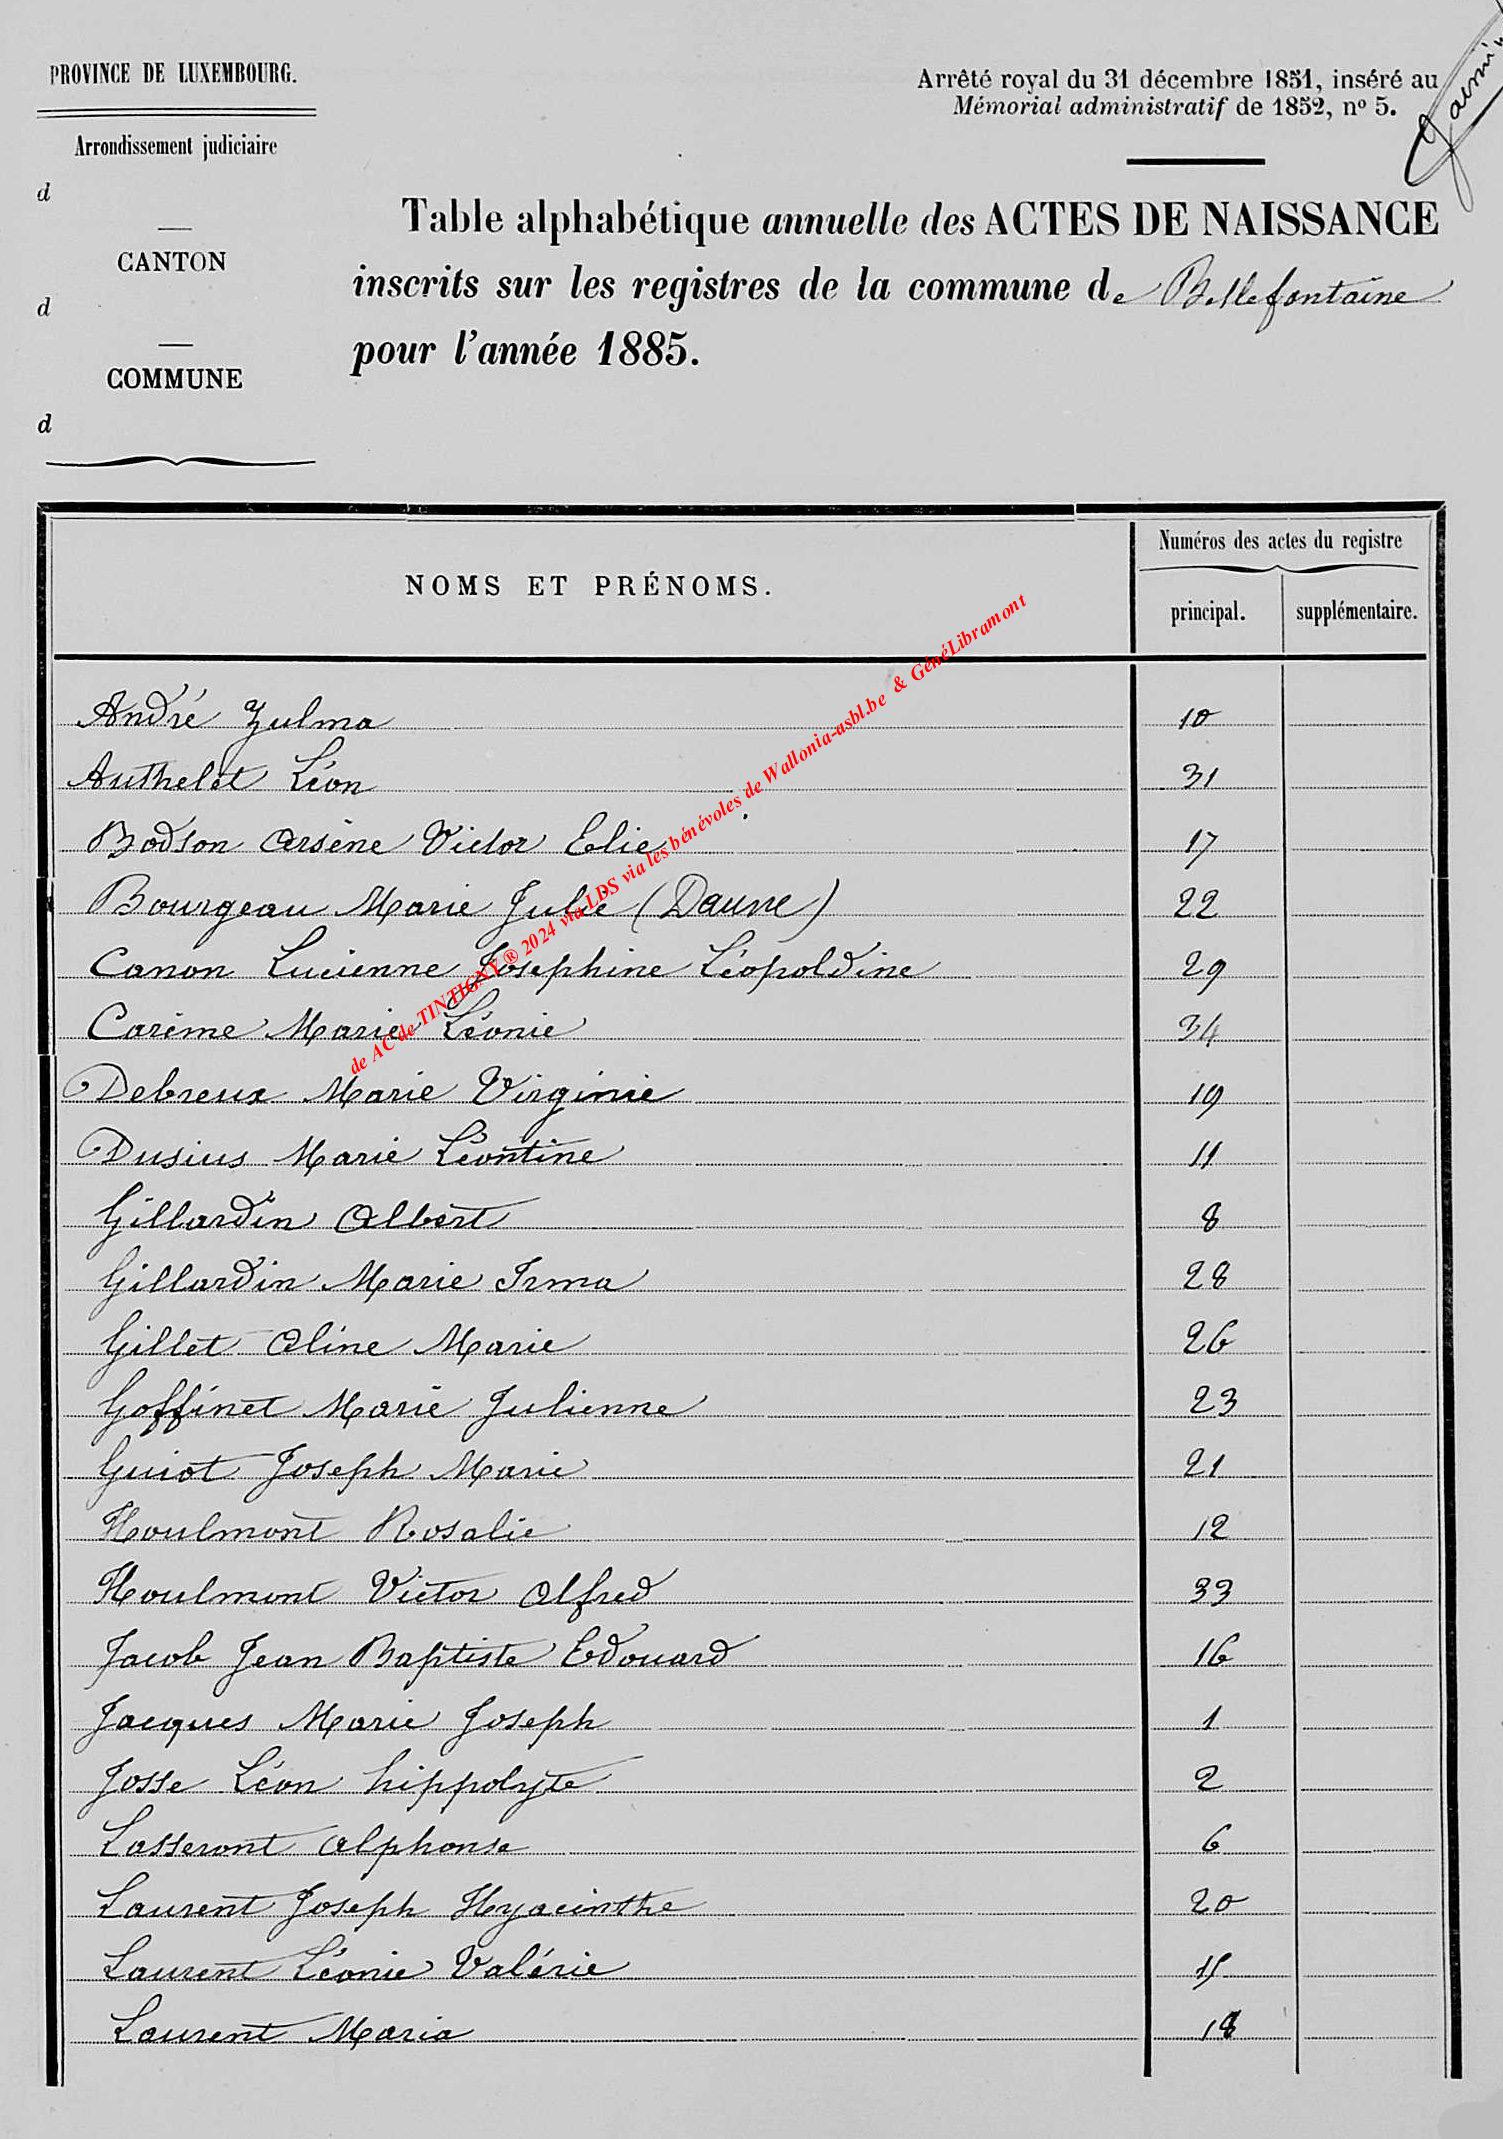 PROVINCE DE LUXEMBOURG.
Arrondissement judiciaire
d
CANTON
d
COMMUNE
d
Arrêté royal du 31 décembre 1851, inséré au
Mémorial administratif de 1852, nº 5.
Table alphabétique annuelle des ACTES DE NAISSANCE
inscrits sur les registres de la commune de Bellefontaine
pour l'année 1885.
NOMS ET PRÉNOMS.
Numéros des actes du registre
principal. supplémentaire.
André Zulma 10
Authelet Léon 31
Bodson Arsène Victor Elie 17
Bourgeau Marie Julie (Daune) 22
Canon Lucienne Josephine Léopoldine 29
Carème Marie Léonie 34
Debreux Marie Virginie 19
Dusius Marie Léontine 11
Gillardin Albert 8
Gillardin Marie Irma 28
Gillet Aline Marie 26
Goffinet Marie Julienne 23
Guiot Joseph Marie 21
Houlmont Rosalie 12
Houlmont Victor Alfred 33
Jacob Jean Baptiste Edouard 16
Jacques Marie Joseph 1
Josse Léon hippolyte 2
Lasseront Alphonse 6
Laurent Joseph Hyacinthe 20
Laurent Léonie Valérie 15
Laurent Maria 18
de AC de TINTIGNY ® 2024 via LDS via les bénévoles de Wallonia-asbl.be & GénéLibramont